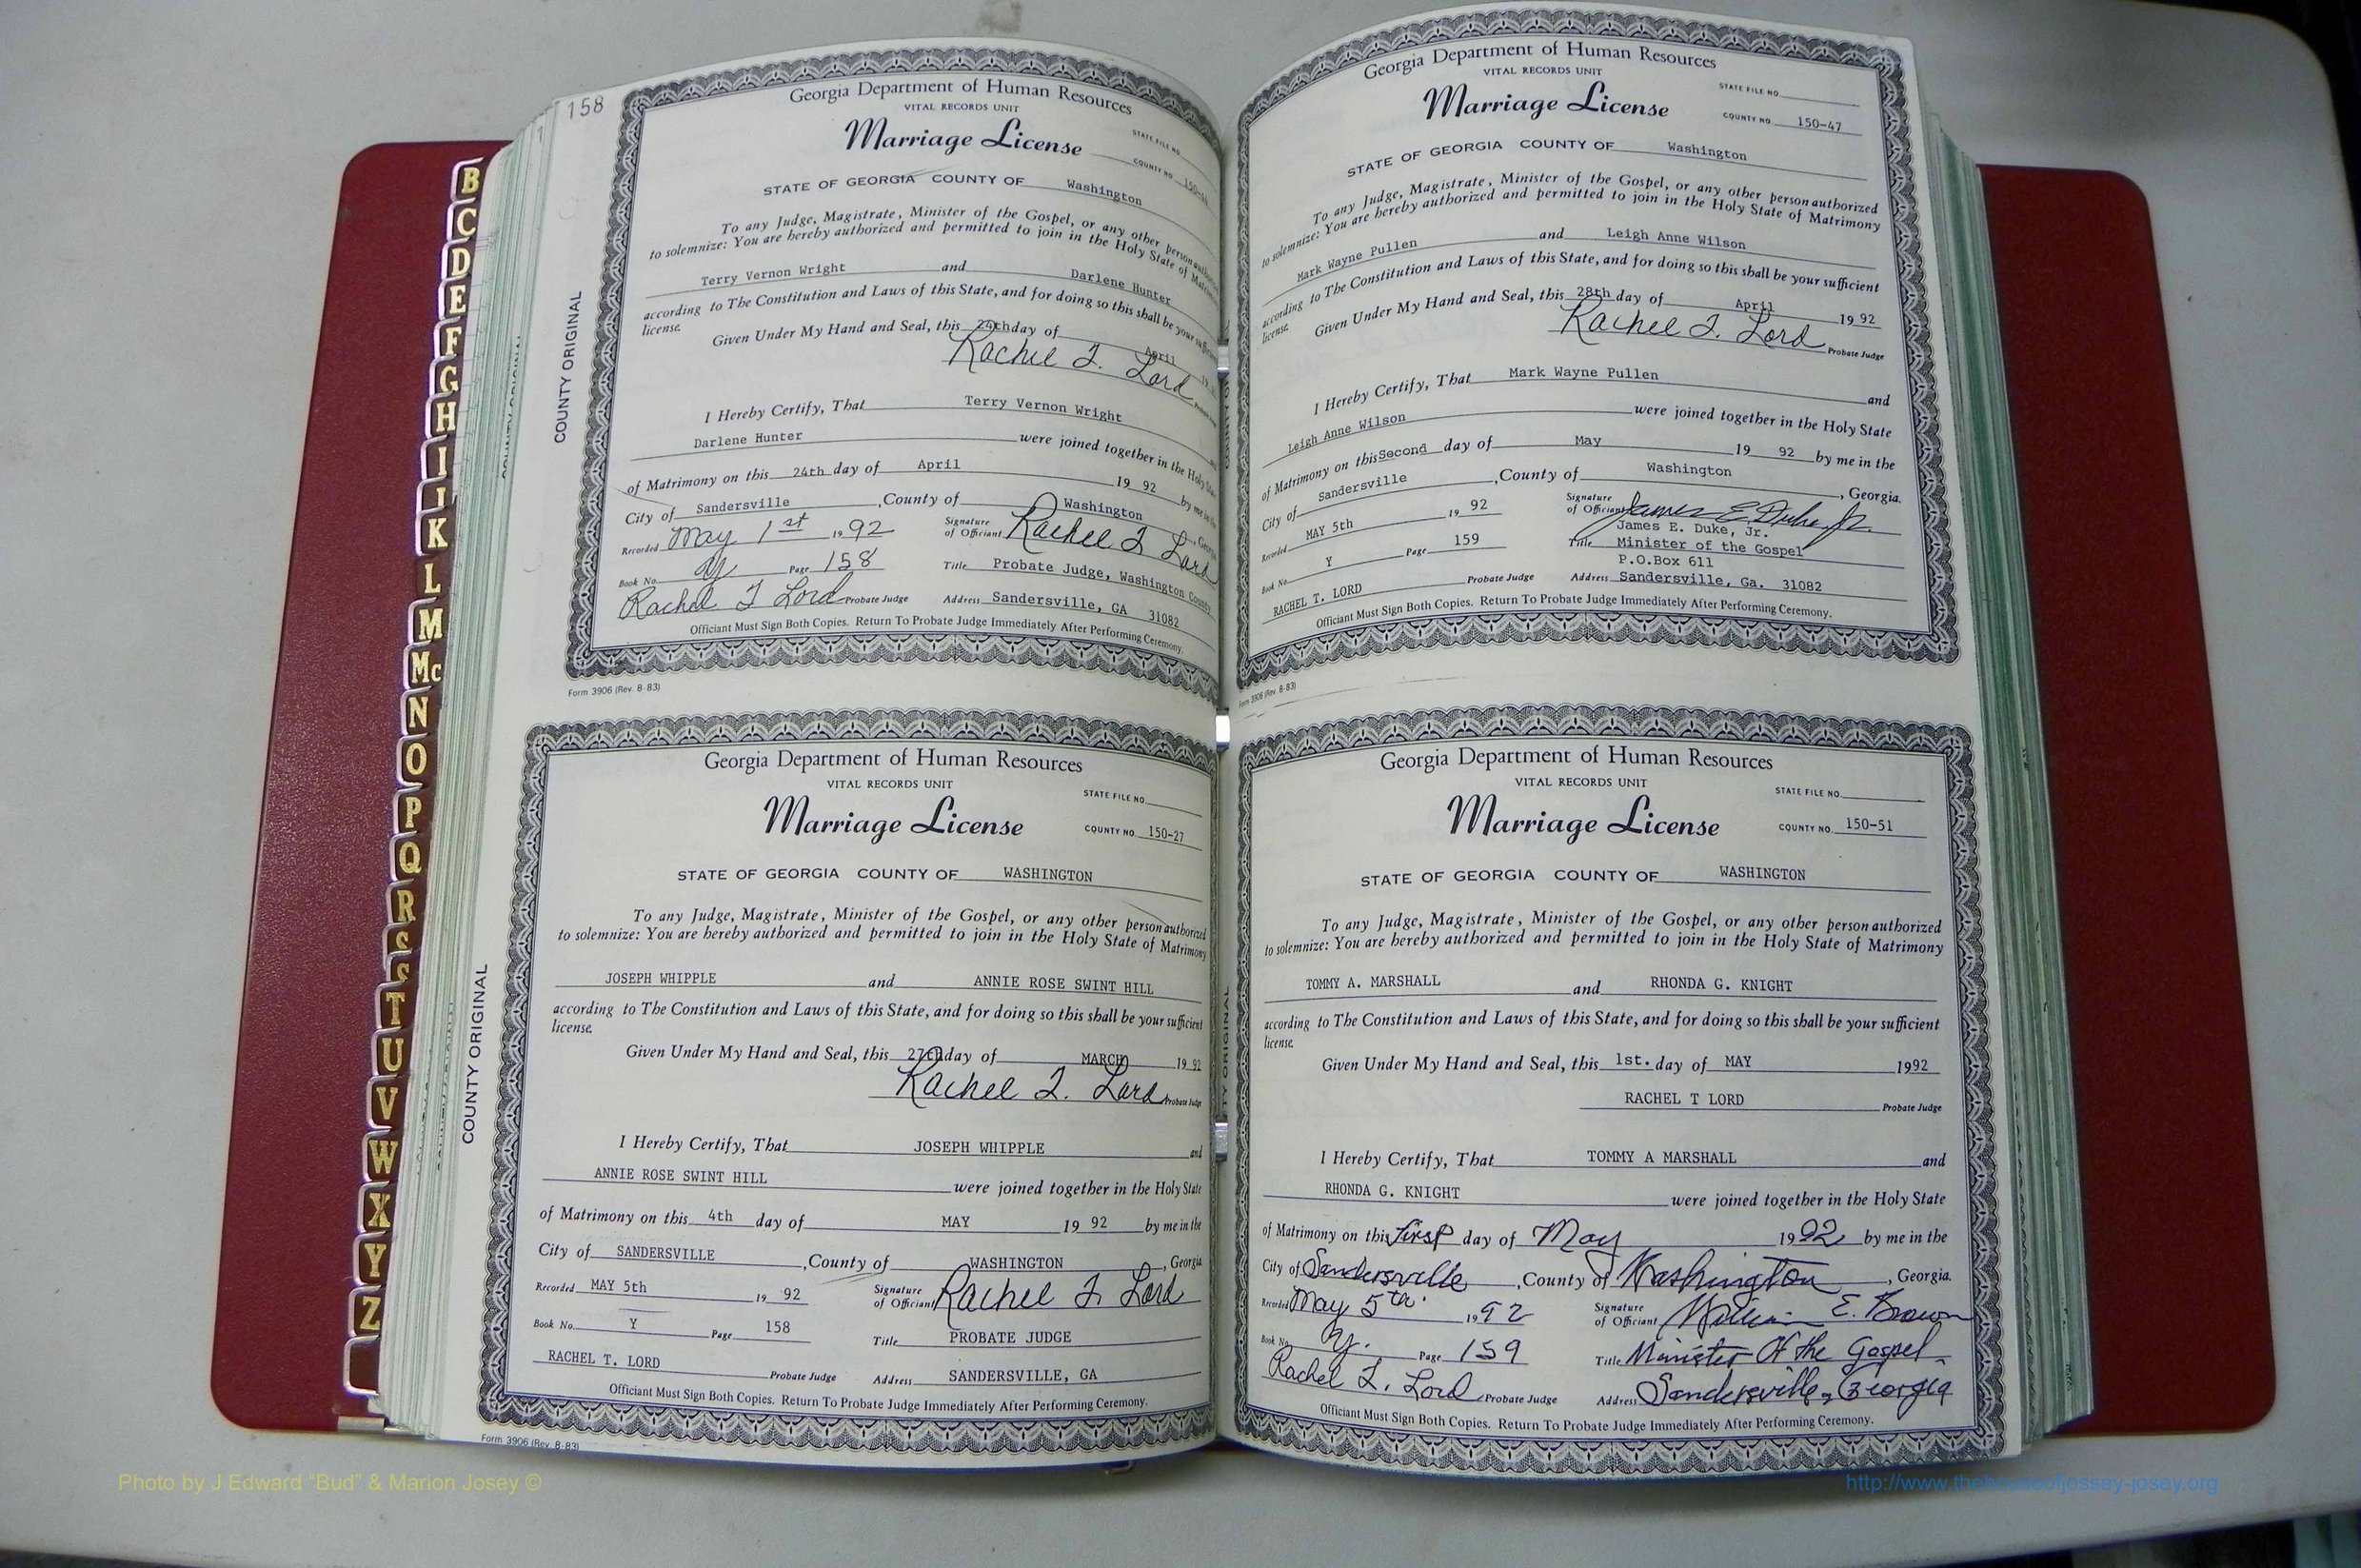 158
COUNTY ORIGINAL
Georgia Department of Human Resources
VITAL RECORDS UNIT
Marriage License
STATE FILE NO.
COUNTY NO.
STATE OF GEORGIA COUNTY OF Washington
To any Judge, Magistrate, Minister of the Gospel, or any other person authorized
to solemnize: You are hereby authorized and permitted to join in the Holy State of Matrimony
Terry Vernon Wright and Darlene Hunter
according to The Constitution and Laws of this State, and for doing so this shall be your sufficient
license.
Given Under My Hand and Seal, this 24th day of April 19
Rachel T. Lord
I Hereby Certify, That Terry Vernon Wright
Darlene Hunter were joined together in the Holy State
of Matrimony on this 24th day of April 19 92 by me in the
City of Sandersville, County of Washington, Georgia
Recorded May 1st 1992 Signature of Officiant Rachel T Lord
Book No. Y Page 158 Title Probate Judge, Washington County
Rachel T Lord Probate Judge Address Sandersville, GA 31082
Officiant Must Sign Both Copies. Return To Probate Judge Immediately After Performing Ceremony.
Form 3906 (Rev. 8-83)
Georgia Department of Human Resources
VITAL RECORDS UNIT
Marriage License
STATE FILE NO.
COUNTY NO. 150-47
STATE OF GEORGIA COUNTY OF Washington
To any Judge, Magistrate, Minister of the Gospel, or any other person authorized
to solemnize: You are hereby authorized and permitted to join in the Holy State of Matrimony
Mark Wayne Pullen and Leigh Anne Wilson
according to The Constitution and Laws of this State, and for doing so this shall be your sufficient
license.
Given Under My Hand and Seal, this 28th day of April 19 92
Rachel T. Lord Probate Judge
I Hereby Certify, That Mark Wayne Pullen and
Leigh Anne Wilson were joined together in the Holy State
of Matrimony on this Second day of May 19 92 by me in the
City of Sandersville, County of Washington, Georgia.
Recorded MAY 5th 19 92 Signature of Officiant James E Duke, Jr.
James E. Duke, Jr.
Book No. Y Page 159 Title Minister of the Gospel
P.O.Box 611
RACHEL T. LORD Probate Judge Address Sandersville, Ga. 31082
Officiant Must Sign Both Copies. Return To Probate Judge Immediately After Performing Ceremony.
Form 3906 (Rev. 8-83)
COUNTY ORIGINAL
Georgia Department of Human Resources
VITAL RECORDS UNIT
Marriage License
STATE FILE NO.
COUNTY NO. 150-27
STATE OF GEORGIA COUNTY OF WASHINGTON
To any Judge, Magistrate, Minister of the Gospel, or any other person authorized
to solemnize: You are hereby authorized and permitted to join in the Holy State of Matrimony
JOSEPH WHIPPLE and ANNIE ROSE SWINT HILL
according to The Constitution and Laws of this State, and for doing so this shall be your sufficient
license.
Given Under My Hand and Seal, this 27th day of MARCH 19 92
Rachel T. Lord Probate Judge
I Hereby Certify, That JOSEPH WHIPPLE and
ANNIE ROSE SWINT HILL were joined together in the Holy State
of Matrimony on this 4th day of MAY 19 92 by me in the
City of SANDERSVILLE, County of WASHINGTON, Georgia
Recorded MAY 5th 19 92 Signature of Officiant Rachel T. Lord
Book No. Y Page 158 Title PROBATE JUDGE
RACHEL T. LORD Probate Judge Address SANDERSVILLE, GA
Officiant Must Sign Both Copies. Return To Probate Judge Immediately After Performing Ceremony.
Form 3906 (Rev. 8-83)
Georgia Department of Human Resources
VITAL RECORDS UNIT
Marriage License
STATE FILE NO.
COUNTY NO. 150-51
STATE OF GEORGIA COUNTY OF WASHINGTON
To any Judge, Magistrate, Minister of the Gospel, or any other person authorized
to solemnize: You are hereby authorized and permitted to join in the Holy State of Matrimony
TOMMY A. MARSHALL and RHONDA G. KNIGHT
according to The Constitution and Laws of this State, and for doing so this shall be your sufficient
license.
Given Under My Hand and Seal, this 1st. day of MAY 1992
RACHEL T LORD Probate Judge
I Hereby Certify, That TOMMY A MARSHALL and
RHONDA G. KNIGHT were joined together in the Holy State
of Matrimony on this first day of May 1992 by me in the
City of Sandersville, County of Washington, Georgia.
Recorded May 5th 1992 Signature of Officiant William E. Brown
Book No. Y. Page 159 Title Minister Of the Gospel
Rachel T. Lord Probate Judge Address Sandersville, Georgia
Officiant Must Sign Both Copies. Return To Probate Judge Immediately After Performing Ceremony.
B
C
D
E
F
G
H
I
J
K
L
M
Mc
N
O
P
Q
R
S
S
T
U
V
W
X
Y
Z
Photo by J Edward “Bud” & Marion Josey ©
http://www.thehouseofjossey-josey.org